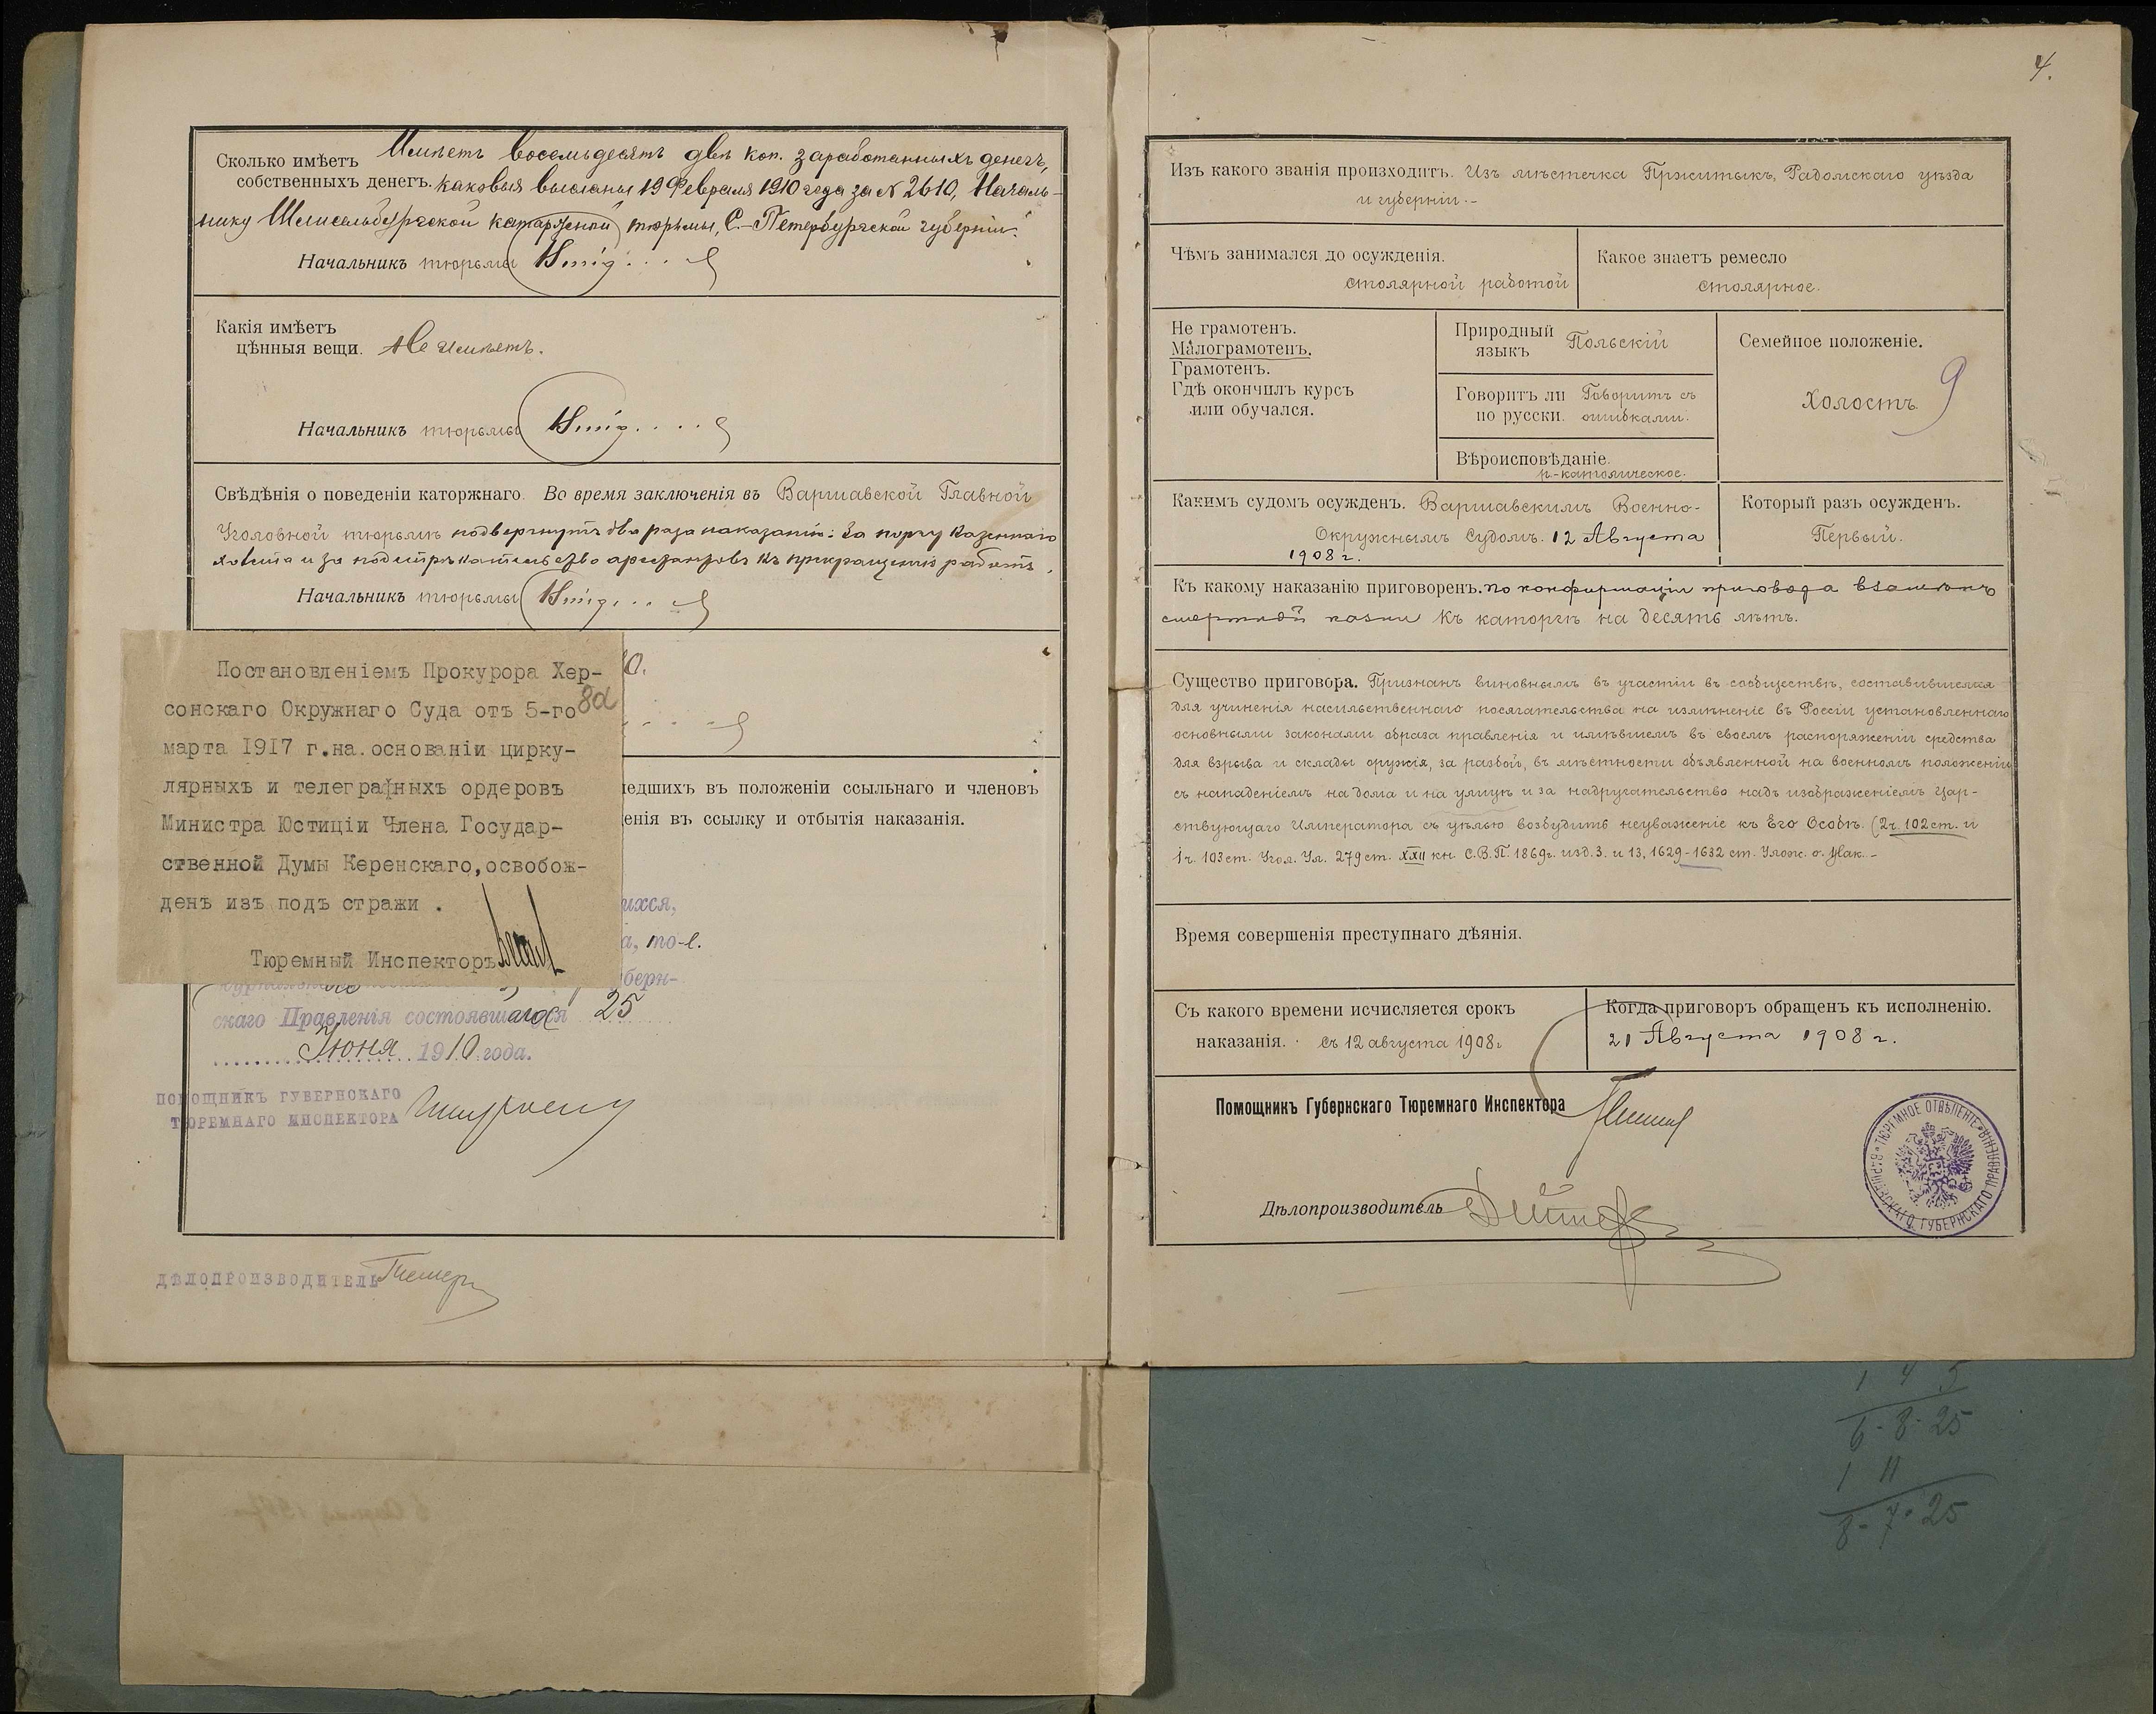 Сколько имѣетъ Имѣетъ восемьдесятъ двѣ коп. заработанныхъ денегъ,
собственныхъ денегъ. каковыя высланы 19 Февраля 1910 года за № 2610, Началь-
нику Шлиссельбургской каторжной тюрьмы, С.-Петербургской губерніи.
Начальникъ тюрьмы
Какія имѣетъ
цѣнныя вещи. Не имѣетъ.
Начальникъ тюрьмы
Свѣдѣнія о поведеніи каторжнаго. Во время заключенія въ Варшавской Главной
Уголовной тюрьмѣ подвергнутъ два раза наказанію: за порчу казеннаго
и за подстрѣкательство арестантовъ къ прекращенію работъ.
Начальникъ тюрьмы
Постановленіемъ Прокурора Хер-
сонскаго Окружнаго Суда отъ 5-го
марта 1917 г. на основаніи цирку-
лярныхъ и телеграфныхъ ордеровъ
Министра Юстиціи Члена Государ-
ственной Думы Керенскаго, освобож-
денъ изъ подъ стражи .
Тюремный Инспекторъ
8а
едшихъ въ положеніи ссыльнаго и членовъ
енія въ ссылку и отбытія наказанія.
ихся,
а, то-е.
берн-
скаго Правленія состоявшагося 25
Іюня 1910 года.
ПОМОЩНИКЪ ГУБЕРНСКАГО
ТЮРЕМНАГО ИНСПЕКТОРА
ДѢЛОПРОИЗВОДИТЕЛЬ
4.
Изъ какого званія происходитъ. Изъ мѣстечка Пржитыкъ, Радомскаго уѣзда
и губерніи.-
Чѣмъ занимался до осужденія.
столярной работой
Какое знаетъ ремесло
столярное.
Не грамотенъ.
Малограмотенъ.
Грамотенъ.
Гдѣ окончилъ курсъ
или обучался.
Природный языкъ Польскій
Говоритъ ли по русски. Говоритъ съ ошибками.
Вѣроисповѣданіе.
р-католическое.
Семейное положеніе.
Холостъ.
9
Какимъ судомъ осужденъ. Варшавскимъ Военно-
Окружнымъ Судомъ. 12 Августа
1908 г.
Который разъ осужденъ.
Первый.
Къ какому наказанію приговоренъ. по конфирмаціи приговора взамѣнъ
смертной казни къ каторгѣ на десять лѣтъ.
Существо приговора. Признанъ виновнымъ въ участіи въ сообществѣ, составившемся
для учиненія насильственнаго посягательства на измѣненіе въ Россіи установленнаго
основными законами образа правленія и имѣвшемъ въ своемъ распоряженіи средства
для взрыва и склады оружія, за разбой, въ мѣстности объявленной на военномъ положеніи
съ нападеніемъ на дома и на улицѣ и за надругательство надъ изображеніемъ Цар-
ствующаго Императора съ цѣлью возбудить неуваженіе къ Его Особѣ. (2 ч. 102 ст. и
1 ч. 103 ст. Угол. Ул. 279 ст. XXII кн. С.В.П. 1869 г. изд. 3. и 13, 1629-1632 ст. Улож. о Нак.-
Время совершенія преступнаго дѣянія.
Съ какого времени исчисляется срокъ
наказанія. съ 12 августа 1908 г.
Когда приговоръ обращенъ къ исполненію.
21 Августа 1908 г.
Помощникъ Губернскаго Тюремнаго Инспектора
Дѣлопроизводитель
ТЮРЕМНОЕ ОТДѢЛЕНІЕ ВАРШАВСКАГО ГУБЕРНСКАГО ПРАВЛЕНІЯ
1 4 5
6-8-25
1 11
8-7-25